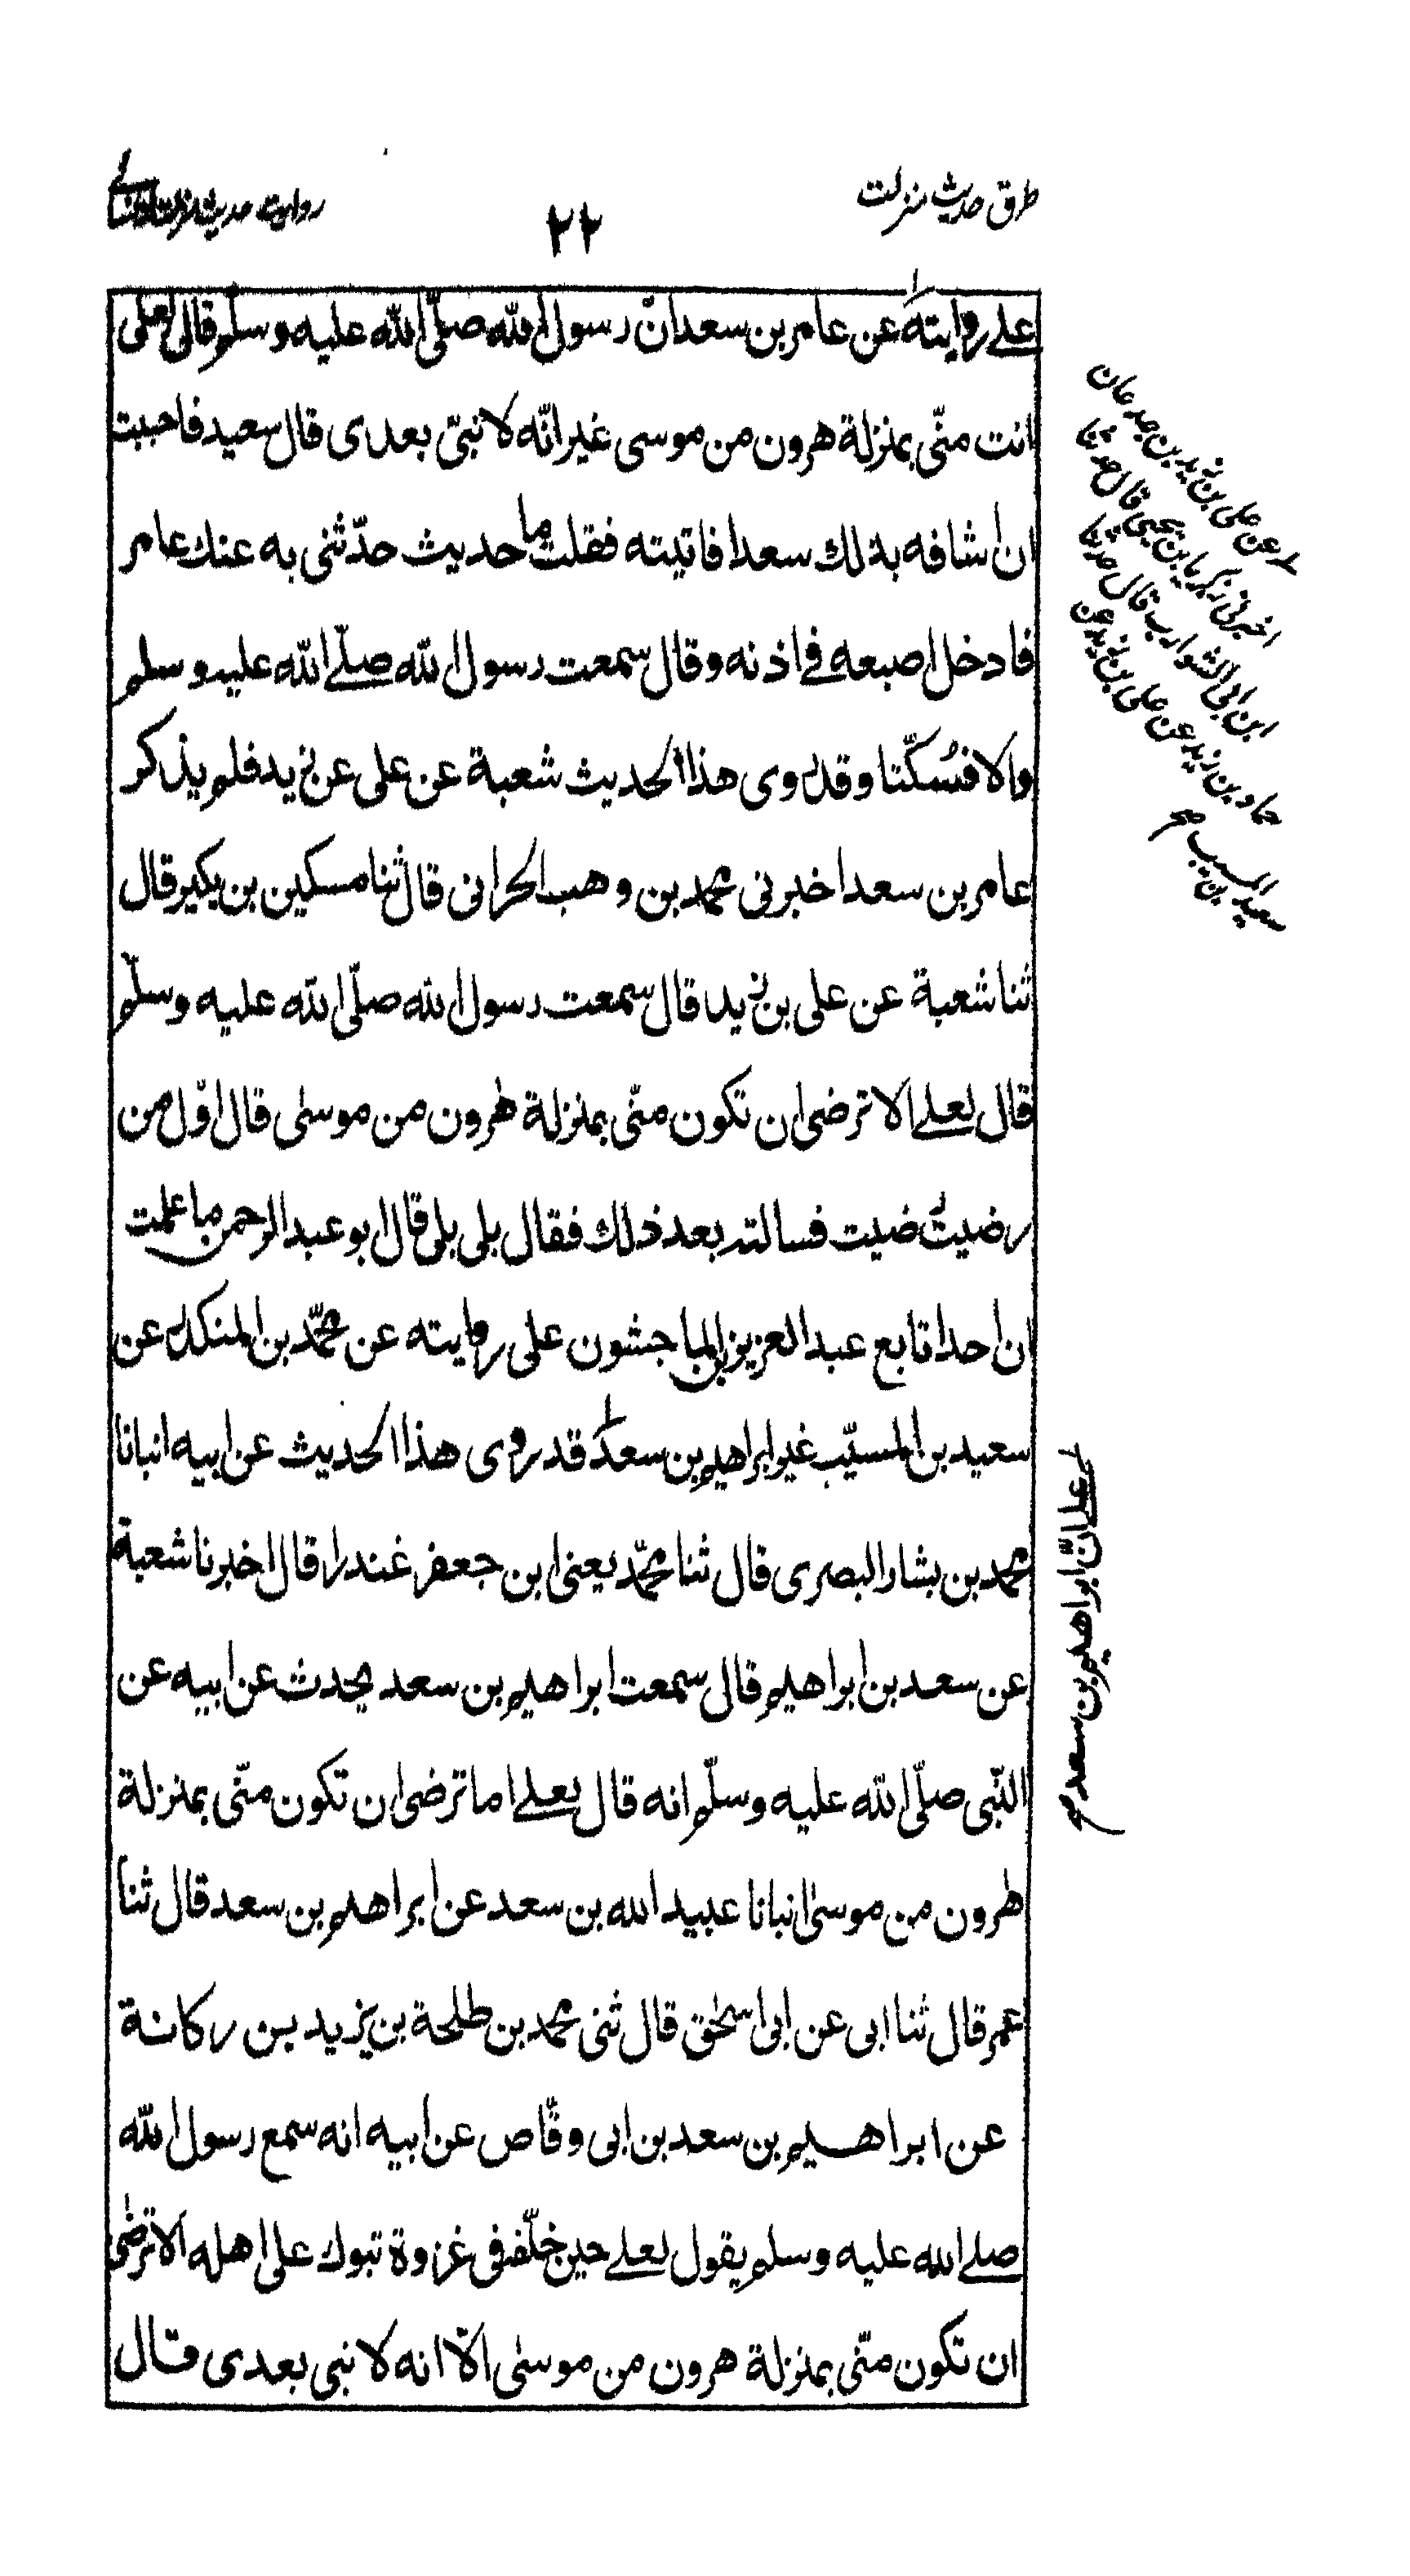 طرق حدیث منزلت
۲۲
روایت حدیث منزلت از نسائی
علے روایته عن عامر بن سعد انّ رسول اللّه صلّی اللّه علیه وسلّم قال لعلی
انت منّی بمنزلة هرون من موسی غیر انّه لا نبیّ بعدی قال سعید فاحببت
ان اشافه بذلك سعدا فاتیته فقلت ما حدیث حدّثنی به عنك عامر
فادخل اصبعه فے اذنه وقال سمعت رسول اللّه صلّے اللّه علیه وسلم
والا فسُكّتا وقد روی هذا الحدیث شعبة عن علی عن زید فلم یذكر
عامر بن سعد اخبرنی محمد بن وهب الحرانی قال ثنا مسكین بن بكیر قال
ثنا شعبة عن علی بن زید قال سمعت رسول اللّه صلّی اللّه علیه وسلّم
قال لعلے الا ترضی ان تكون منّی بمنزلة هٰرون من موسٰی قال اوّل من
رضیت رضیت فسالته بعد ذلك فقال بلی بلی قال ابو عبد الرحمن ما علمت
ان احدا تابع عبد العزیز بن الماجشون علی روایته عن محمّد بن المنكدر عن
سعید بن المسیّب غیر ابراهیم بن سعد قد روی هذا الحدیث عن ابیه انبانا
محمد بن بشار البصری قال ثنا محمّد یعنی ابن جعفر غندرا قال اخبرنا شعبة
عن سعد بن ابراهیم قال سمعت ابراهیم بن سعد یحدث عن ابیه عن
النّبی صلّی اللّه علیه وسلّم انه قال لعلے اما ترضی ان تكون منّی بمنزلة
هٰرون من موسٰی انبانا عبید الله بن سعد عن ابراهیم بن سعد قال ثنا
عمر قال ثنا ابی عن ابی اسحٰق قال ثنی محمد بن طلحة بن یزید بن ركانة
عن ابراهیم بن سعد بن ابی وقّاص عن ابیه انه سمع رسول اللّه
صلے الله علیه وسلم یقول لعلے حین خلّفه فی غزوة تبوك علی اهله الا ترضٰی
ان تكون منّی بمنزلة هرون من موسٰی الّا انه لا نبی بعدی قال
عن علی بن زید بن جدعان
اخبرنی زکریا بن یحیی قال حدثنا
ابن ابی الشوارب قال حدثنا
حماد بن زید عن علی بن زید عن
سعید بن المسیب صح
علے انّ ابراهیم بن سعد صح